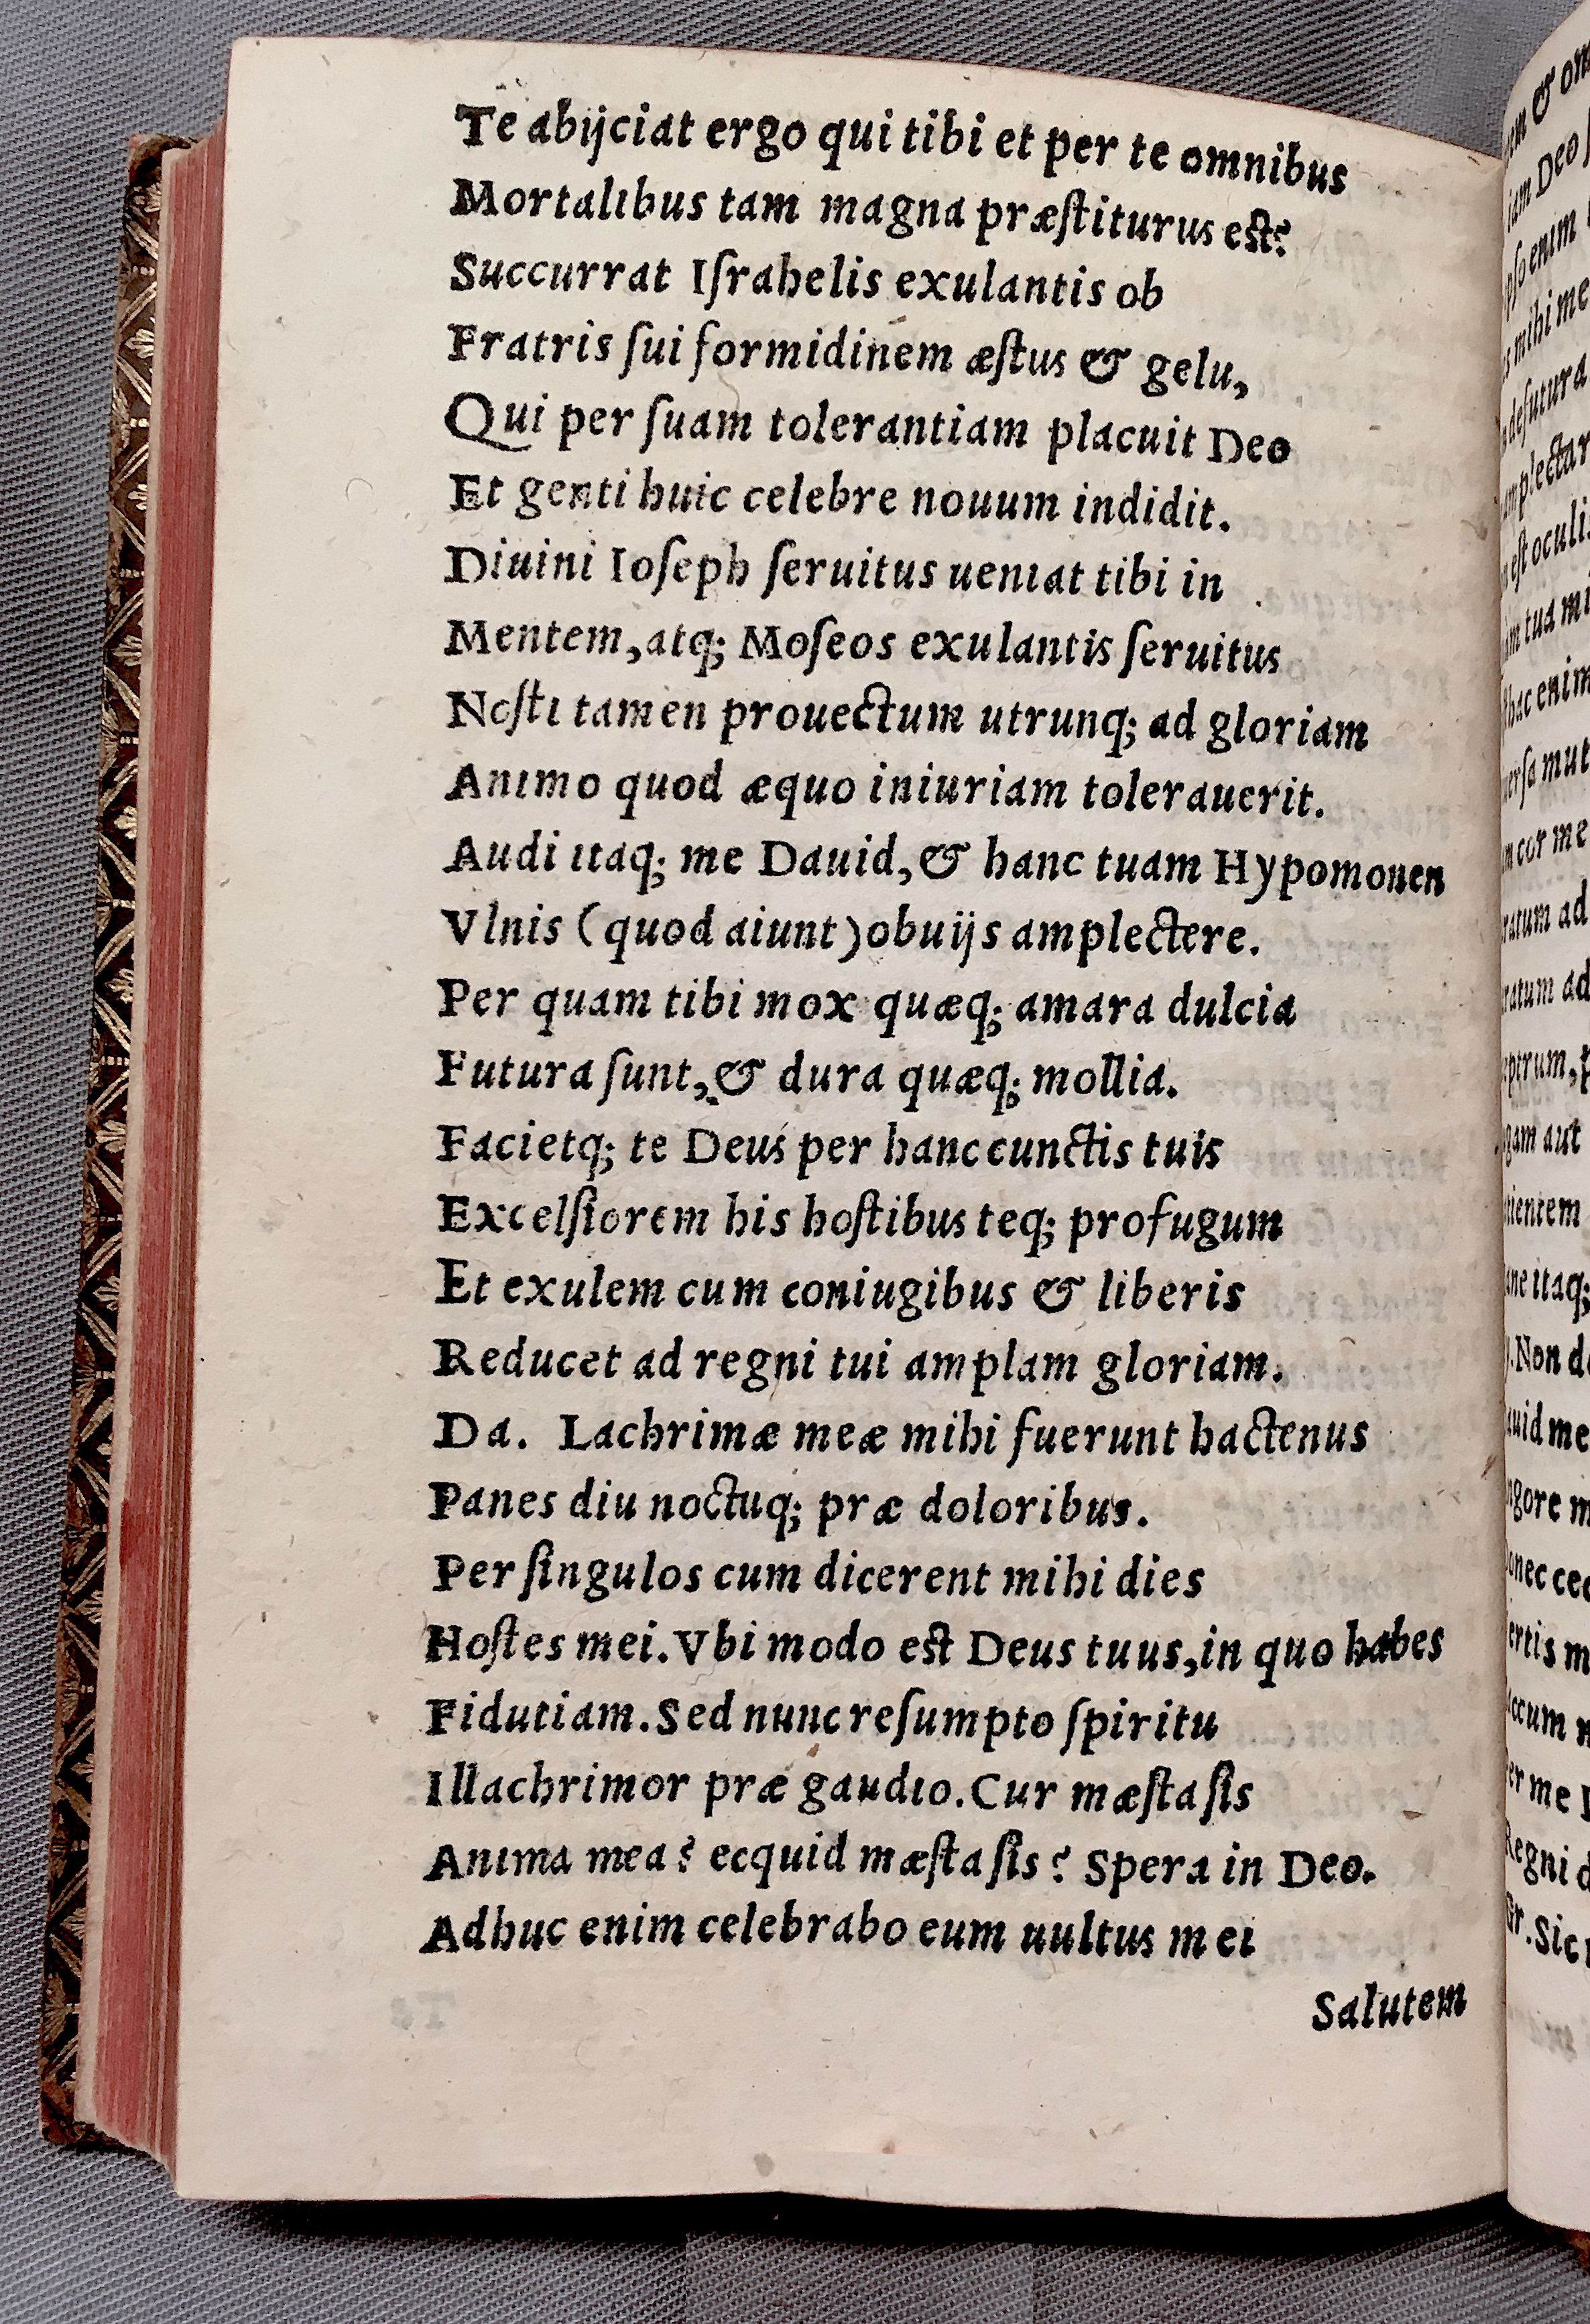 Te abijciat ergo qui tibi et per te omnibus
Mortalibus tam magna præſtiturus est?
Succurrat Iſrahelis exulantis ob
Fratris ſui formidinem æſtus & gelu,
Qui per ſuam tolerantiam placuit Deo
Et genti huic celebre nouum indidit.
Diuini Ioſeph ſeruitus ueniat tibi in
Mentem, atq; Moſeos exulantis ſeruitus
Noſti tamen prouectum utrunq; ad gloriam
Animo quod æquo iniuriam tolerauerit.
Audi itaq; me Dauid, & hanc tuam Hypomonen
Vlnis (quod aiunt) obuijs amplectere.
Per quam tibi mox quæq; amara dulcia
Futura ſunt, & dura quæq; mollia.
Facietq; te Deus per hanc cunctis tuis
Excelſiorem his hoſtibus teq; profugum
Et exulem cum coniugibus & liberis
Reducet ad regni tui amplam gloriam.
Da. Lachrimæ meæ mihi fuerunt hactenus
Panes diu noctuq; præ doloribus.
Per ſingulos cum dicerent mihi dies
Hoſtes mei. Vbi modo est Deus tuus, in quo habes
Fidutiam. Sed nunc reſumpto ſpiritu
Illachrimor præ gaudio. Cur mæſta ſis
Anima mea? ecquid mæſta ſis? Spera in Deo.
Adhuc enim celebrabo eum uultus mei
Salutem